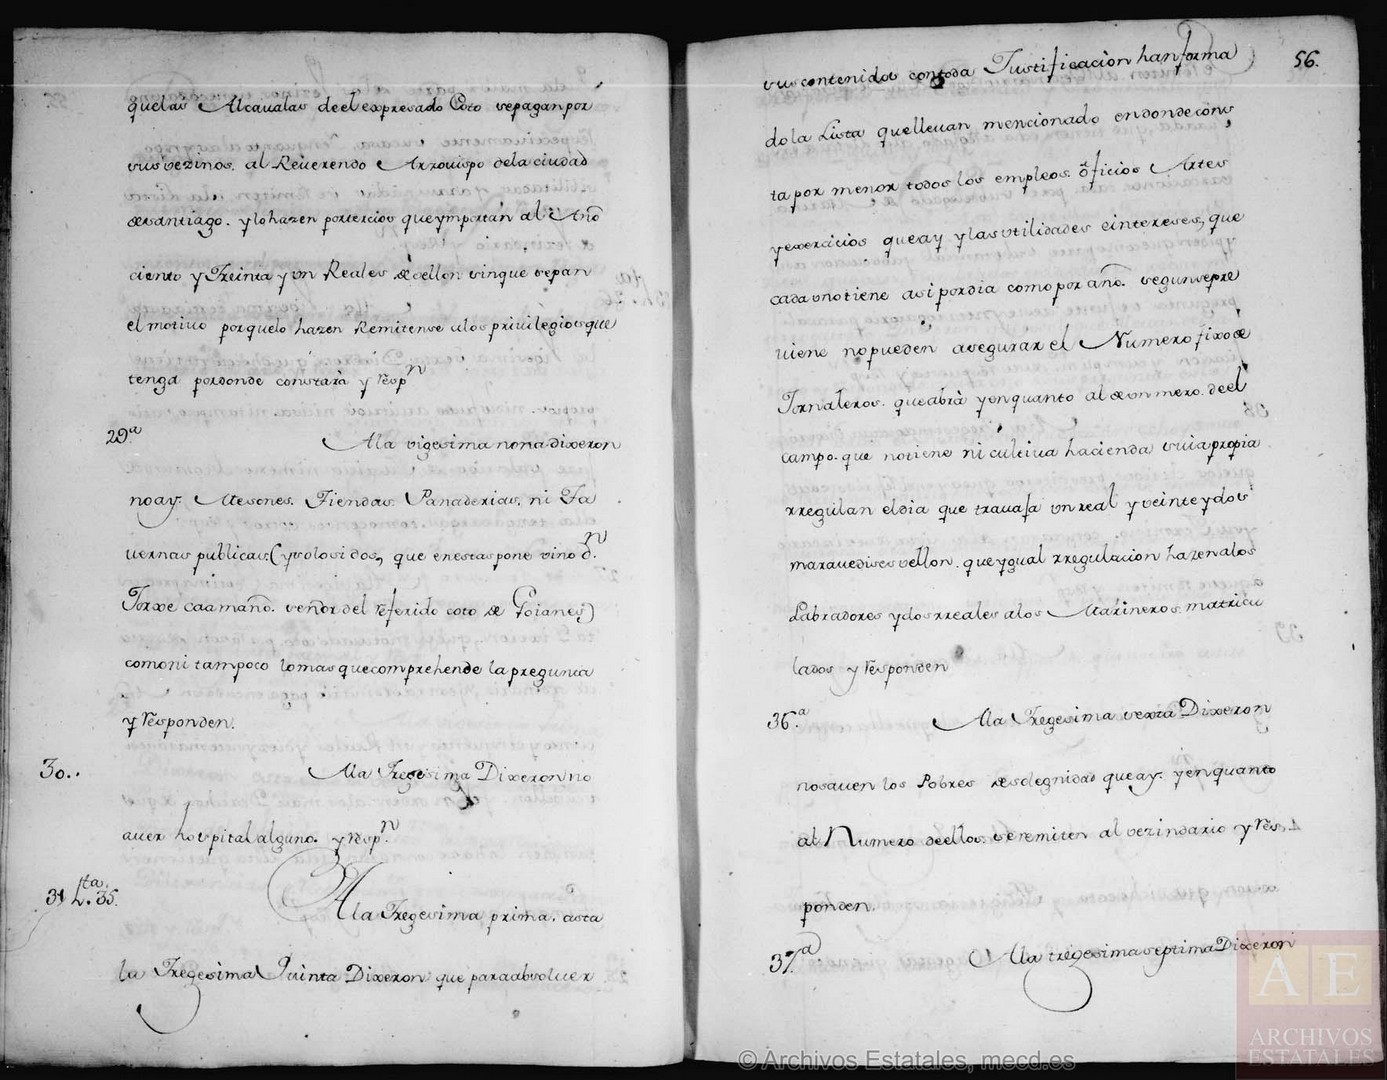 que las Alcavalas de el expresado Coto se pagan por
sus vezinos. al Reverendo Arzovispo de la ciudad
de santiago. y lo hazen por tercios que ymportan al Año
ciento y Treinta y un Reales de vellon sin que sepan
el motivo por que lo hazen Remitense a los privilegios que
tenga por donde constara y respn
29a
A la vigesima nona dixeron
no ay. Mesones. Tiendas. Panaderias. ni Ta
vernas publicas (y solo si dos, que en estas pone vino dn.
Jorxe caamaño. señor del referido coto de Goianes)
como ni tampoco lo mas que comprehende la pregunta
y responden.
30..
A la Tregesima Dixeron no
aver hospital alguno. y respn.
31 hta. 35.
A la Tregesima prima. asta
la Tregesima Quinta Dixeron que para absolver
56.
sus contenidos con toda Justificacion han forma
do la Lista que llevan mencionado en donde cons
ta por menor todos los empleos. oficios Artes
y exercicios que ay y las utilidades e intereses, que
cada uno tiene asi por dia como por año. segun se pre
viene no pueden asegurar el Numero fixo de
Jornaleros. que abrà y en quanto al de un mero. de el
campo. que no tiene ni cultiva hacienda suia propia
rregulan el dia que travaja un real y veinte y dos
maravedises vellon. que ygual rregulacion hazen a los
Labradores y dos rreales a los Marineros. matricu
lados y responden
36.a
A la Tregesima sexta Dixeron
no saven los Pobres de solegnidad que ay. y en quanto
al Numero de ellos. se remiten al vezindario y res,
ponden.
37.a
A la tregesima septima Dixeron
© Archivos Estatales, mecd.es
AE
ARCHIVOS
ESTATALES